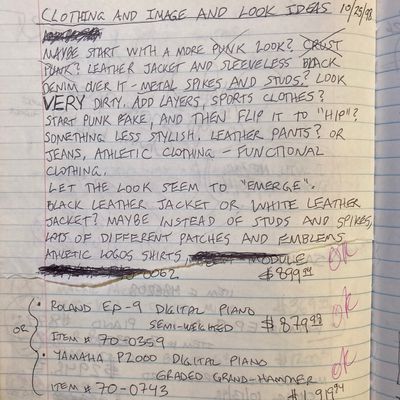 CLOTHING AND IMAGE AND LOOK IDEAS 10/25/98
MAYBE START WITH A MORE PUNK LOOK? CRUST
PUNK? LEATHER JACKET AND SLEEVELESS BLACK
DENIM OVER IT - METAL SPIKES AND STUDS? LOOK
VERY DIRTY. ADD LAYERS, SPORTS CLOTHES?
START PUNK FAKE, AND THEN FLIP IT TO "HIP"?
SOMETHING LESS STYLISH. LEATHER PANTS? OR
JEANS, ATHLETIC CLOTHING - FUNCTIONAL
CLOTHING.
LET THE LOOK SEEM TO "EMERGE".
BLACK LEATHER JACKET OR WHITE LEATHER
JACKET? MAYBE INSTEAD OF STUDS AND SPIKES,
LOTS OF DIFFERENT PATCHES AND EMBLEMS
ATHLETIC LOGOS SHIRTS MODULE OK
0062 $899
• ROLAND EP-9 DIGITAL PIANO OK
OR SEMI-WEIGHTED $879
ITEM # 70-0359
• YAMAHA P2000 DIGITAL PIANO OK
GRADED GRAND-HAMMER
ITEM # 70-0743